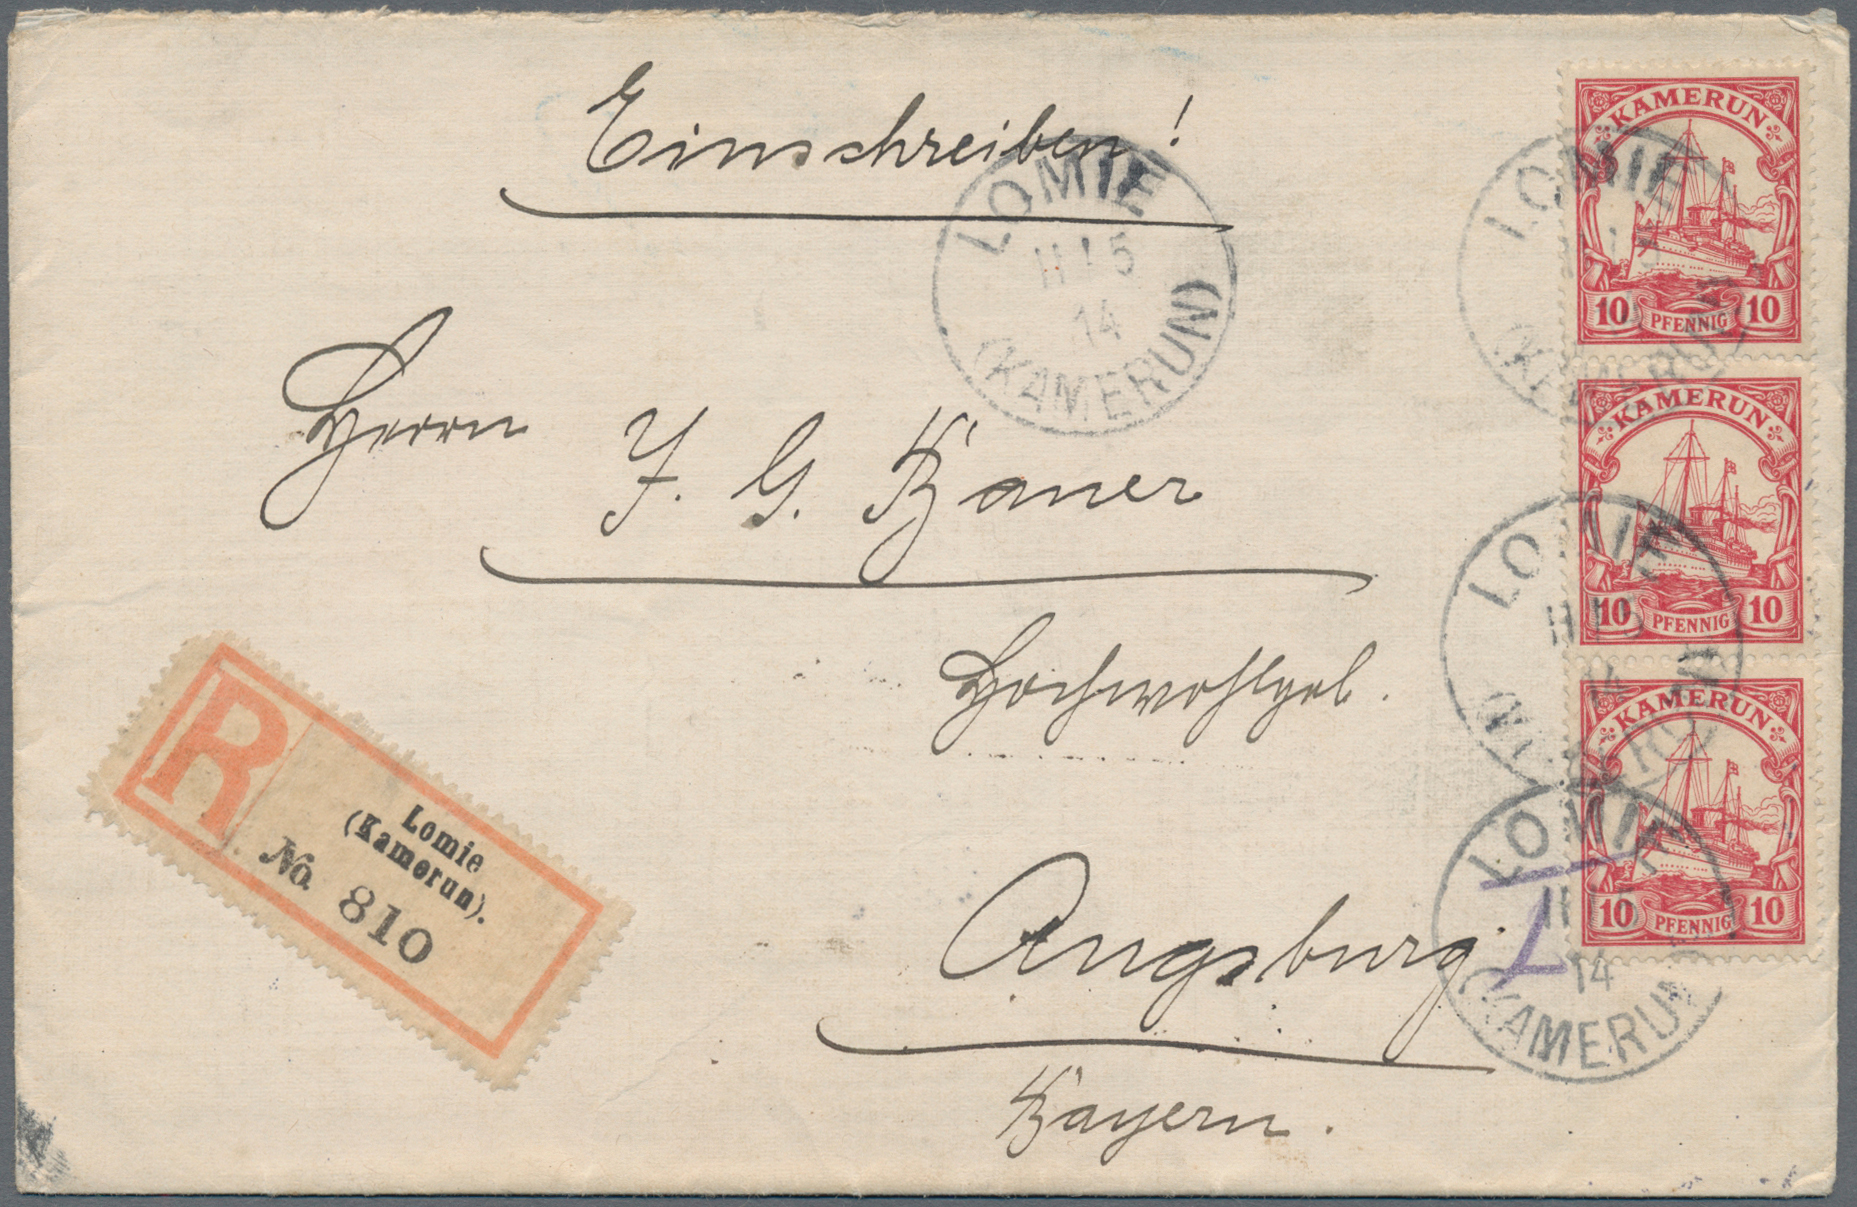 Einschreiben!
LOMIE
11 / 5
14
(KAMERUN)
KAMERUN
10 PFENNIG 10
LOMIE
(KAMERUN)
Herrn
J. G. Bauer
KAMERUN
10 PFENNIG 10
LOMIE
11 / 5
14
Hochwohlgeb.
R
Lomie
(Kamerun).
No. 810
KAMERUN
10 PFENNIG 10
LOMIE
14
(KAMERUN)
Augsburg.
Bayern.